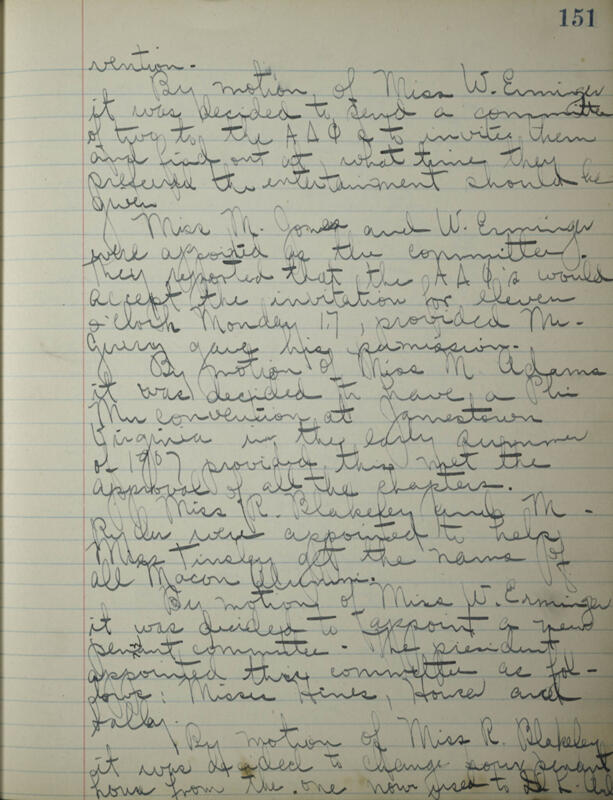 151
vention.
By motion of Miss W. Erminger
it was decided to send a committee
of two to the ΑΔΦ's to invite them
and find out at what time they
preferred the entertainment should be
given.
Miss M. Jones and W. Erminger
were appointed as the committee.
They reported that the ΑΔΦ's would
accept the invitation for eleven
o'clock Monday 17, provided Mr.
gave his permission.
By motion of Miss M Adams
it was decided to have a Phi
Mu convention at Jamestown
Virginia in the early summer
of 1907 provided this met the
approval of all the chapters.
Miss R. Blakeley and M.
Ryder were appointed to help
Miss Tinsley get the names of
all Macon Alumni.
By motion of Miss W. Erminger
it was decided to appoint a new
committee. The president
appointed this committee as fol-
lows: Misses Hines, Houser and
By motion of Miss R. Blakeley
it was decided to change our
hour from the one now used to